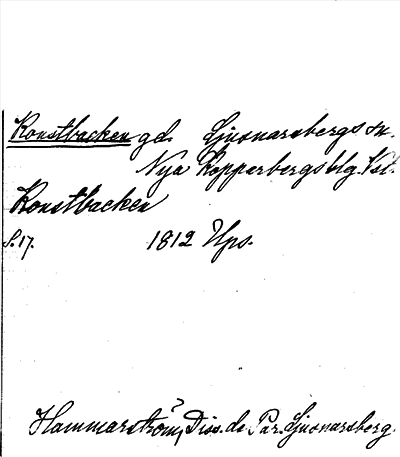 Konstbacken gd. Ljusnarsbergs sn.
Nya Kopparbergs blg. Vstl.
Konstbacken
S. 17. 1812 Ups.
Hammarström, Diss. de Par. Ljusnarsberg.